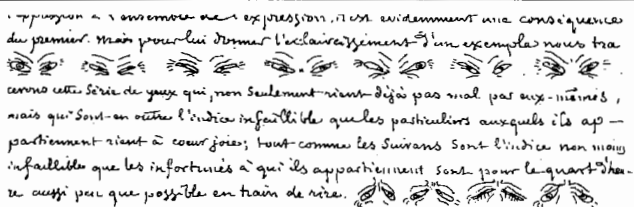 l'expression à l'ensemble de l'expression, il est evidemment une conséquence
du premier. Mais pour lui donner l'éclaircissement d'un exemple nous tra
cerons cette Série de yeux qui, non seulement rient déjà pas mal par eux-mêmes,
mais qui Sont en outre l'indice infaillible que les particuliers auxquels ils ap-
partiennent rient à coeur joie; tout comme les Suivans Sont l'indice non moins
infaillible que les infortunés à qui ils appartiennent sont pour le quart d'heu-
re aussi peu que possible en train de rire.